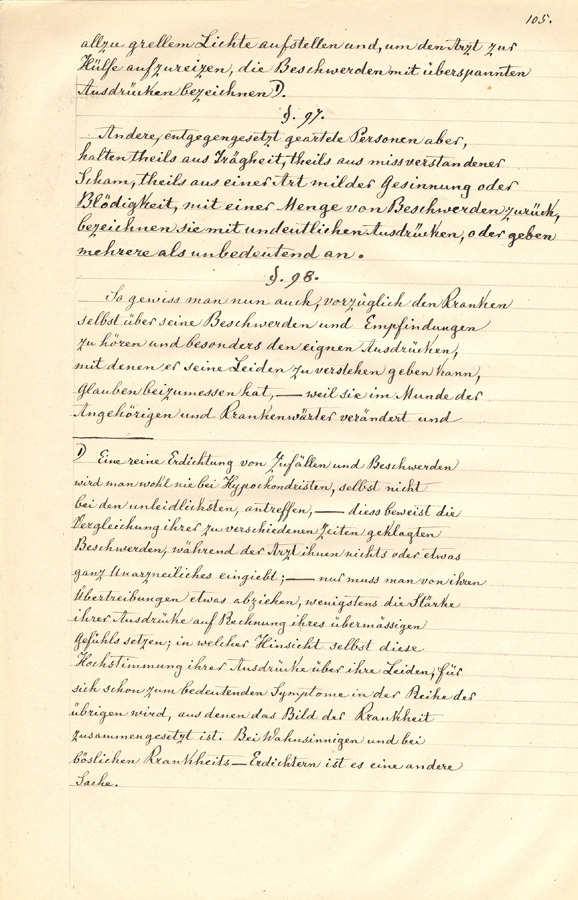 105.
allzu grellem Lichte aufstellen und, um den Arzt zur
Hülfe aufzureizen, die Beschwerden mit überspannten
Ausdrücken bezeichnen 1).
§. 97.
Andere, entgegengesetzt geartete Personen aber,
halten theils aus Trägheit, theils aus missverstandener
Scham, theils aus einer Art milder Gesinnung oder
Blödigkeit, mit einer Menge von Beschwerden zurück,
bezeichnen sie mit undeutlichen Ausdrücken, oder geben
mehrere als unbedeutend an.
§. 98.
So gewiss man nun auch, vorzüglich den Kranken
selbst über seine Beschwerden und Empfindungen
zu hören und besonders den eignen Ausdrücken,
mit denen er seine Leiden zu verstehen geben kann,
Glauben beizumessen hat, — weil sie im Munde der
Angehörigen und Krankenwärter verändert und
1) Eine reine Erdichtung von Zufällen und Beschwerden
wird man wohl nie bei Hypochondristen, selbst nicht
bei den unleidlichsten, antreffen, — diess beweist die
Vergleichung ihrer zu verschiedenen Zeiten geklagten
Beschwerden, während der Arzt ihnen nichts oder etwas
ganz Unarzneiliches eingiebt; — nur muss man von ihren
Übertreibungen etwas abziehen, wenigstens die Stärke
ihrer Ausdrücke auf Rechnung ihres übermässigen
Gefühls setzen; in welcher Hinsicht selbst diese
Hochstimmung ihrer Ausdrücke über ihre Leiden, für
sich schon zum bedeutenden Symptome in der Reihe der
übrigen wird, aus denen das Bild der Krankheit
zusammengesetzt ist. Bei Wahnsinnigen und bei
böslichen Krankheits-Erdichtern ist es eine andere
Sache.